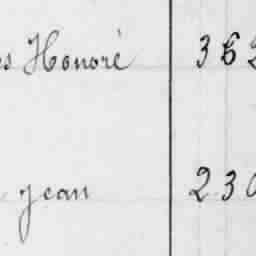 es Honoré 362
jean 230